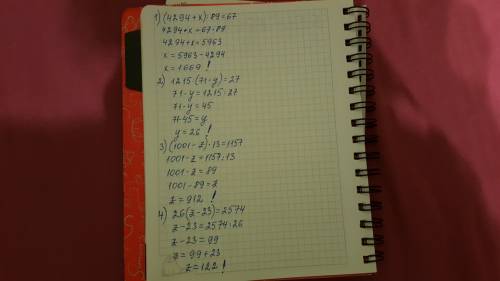 1) (4294+x):89=67
4294+x=67·89
4294+x=5963
x=5963-4294
x=1669!
2) 1215:(71-y)=27
71-y=1215:27
71-y=45
71-45=y
y=26!
3) (1001-z)·13=1157
1001-z=1157:13
1001-z=89
1001-89=z
z=912!
4) 26(z-23)=2574
z-23=2574:26
z-23=99
z=99+23
z=122!